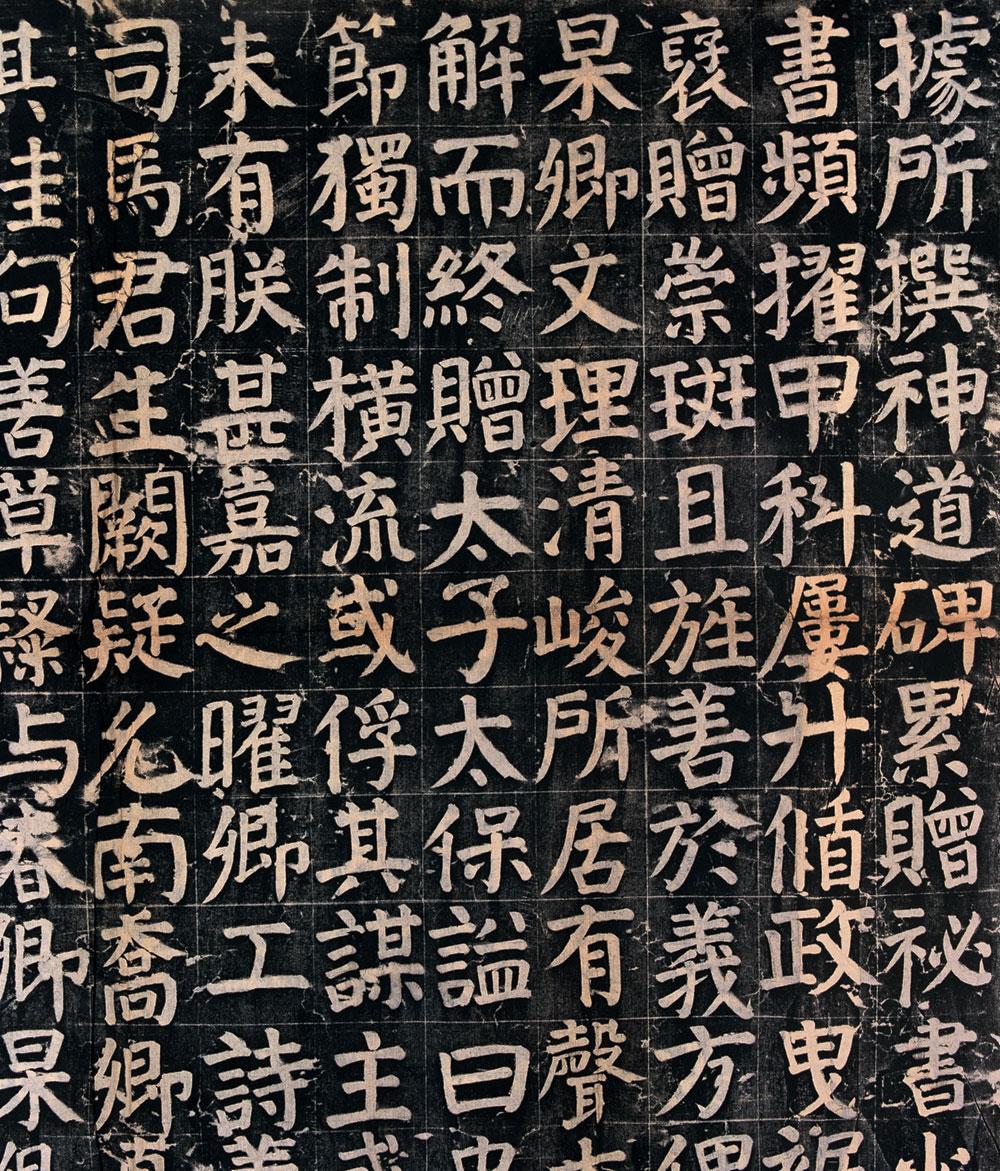 據所撰神道碑累贈祕書
書頻擢甲科屢升偱政曳
襃贈崇斑且旌善於義方
杲卿文理清峻所居有聲
解而終贈太子太保謚曰
節獨制橫流或俘其謀主
未有朕甚嘉之曜卿工詩
司馬君生闕疑允南喬卿
其佳句善草隸与春卿杲